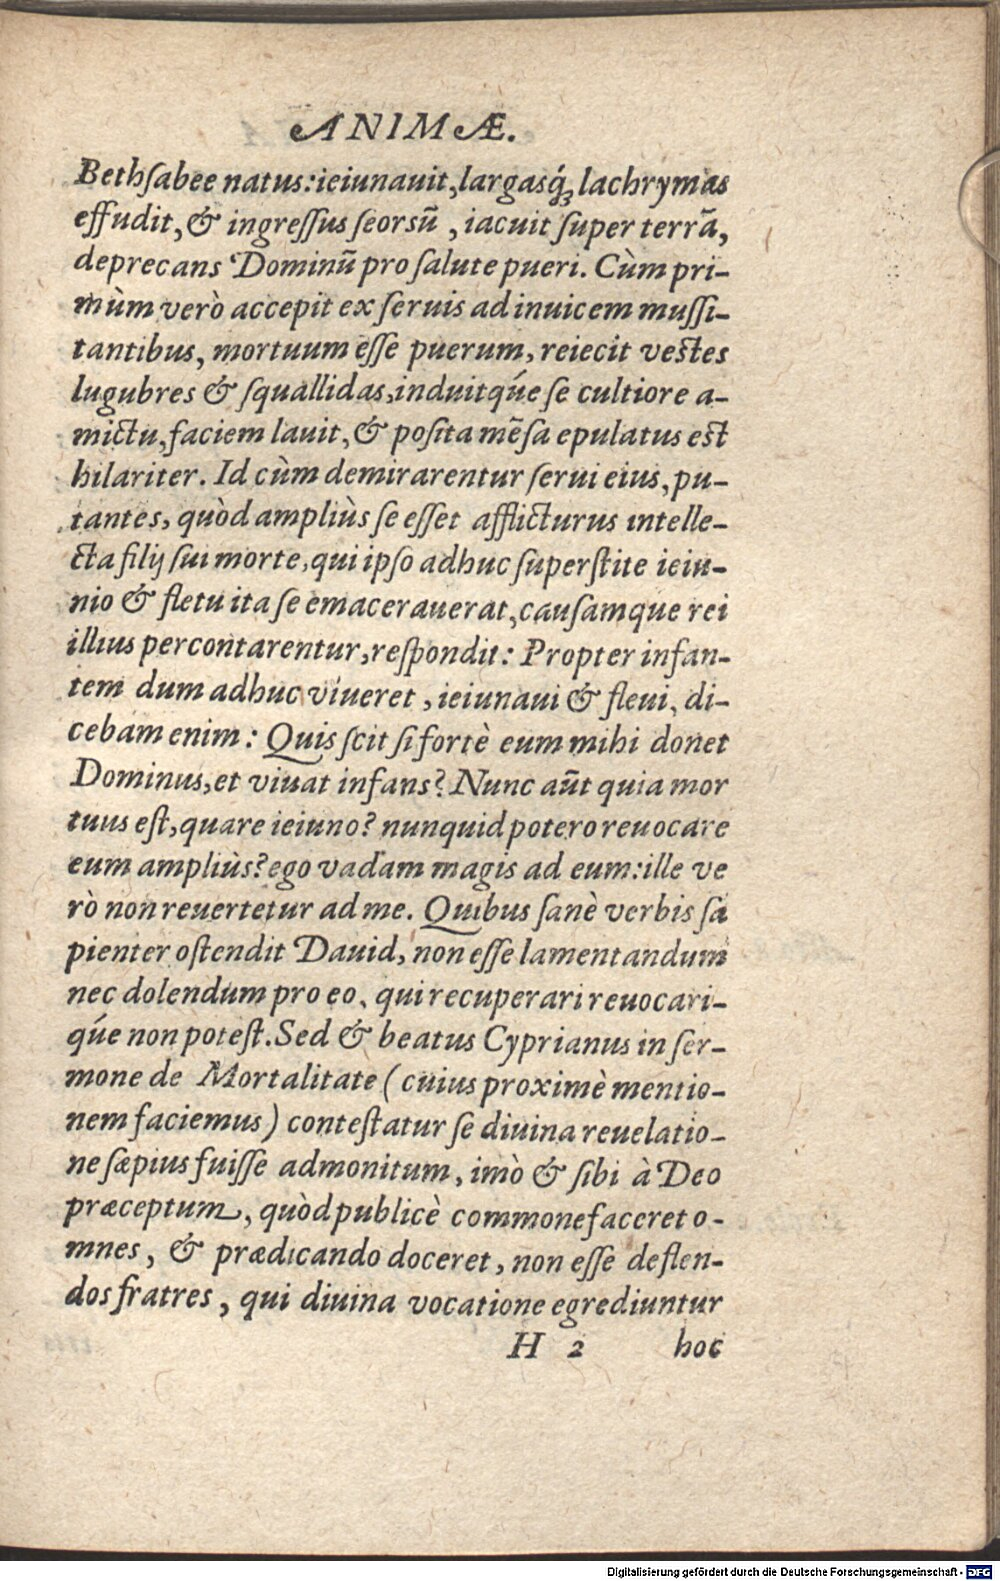 ANIMÆ.
Bethſabee natus: ieiunauit, largasq́ꝫ lachrymas
effudit, & ingreſſus ſeorsū, iacuit ſuper terrā,
deprecans Dominū pro ſalute pueri. Cùm pri-
mùm verò accepit ex ſeruis ad inuicem muſſi-
tantibus, mortuum eſſe puerum, reiecit veſtes
lugubres & ſquallidas, induitq́ue ſe cultiore a-
mictu, faciem lauit, & poſita mēſa epulatus eſt
hilariter. Id cùm demirarentur ſerui eius, pu-
tantes, quòd ampliùs ſe eſſet afflicturus intelle-
cta filij ſui morte, qui ipſo adhuc ſuperſtite ieiu-
nio & fletu ita ſe emacerauerat, cauſamque rei
illius percontarentur, reſpondit: Propter infan-
tem dum adhuc viueret, ieiunaui & fleui, di-
cebam enim: Quis ſcit ſi fortè eum mihi donet
Dominus, et viuat infans? Nunc aūt quia mor
tuus eſt, quare ieiuno? nunquid potero reuocare
eum ampliùs? ego vadam magis ad eum: ille ve
rò non reuertetur ad me. Quibus ſanè verbis ſa
pienter oſtendit Dauid, non eſſe lamentandum
nec dolendum pro eo, qui recuperari reuocari-
q́ue non poteſt. Sed & beatus Cyprianus in ſer-
mone de Mortalitate (cuius proximè mentio-
nem faciemus) conteſtatur ſe diuina reuelatio-
ne ſæpius fuiſſe admonitum, imò & ſibi à Deo
præceptum, quòd publicè commonefaceret o-
mnes, & prædicando doceret, non eſſe deflen-
dos fratres, qui diuina vocatione egrediuntur
H 2 hoc
Digitalisierung gefördert durch die Deutsche Forschungsgemeinschaft - DFG